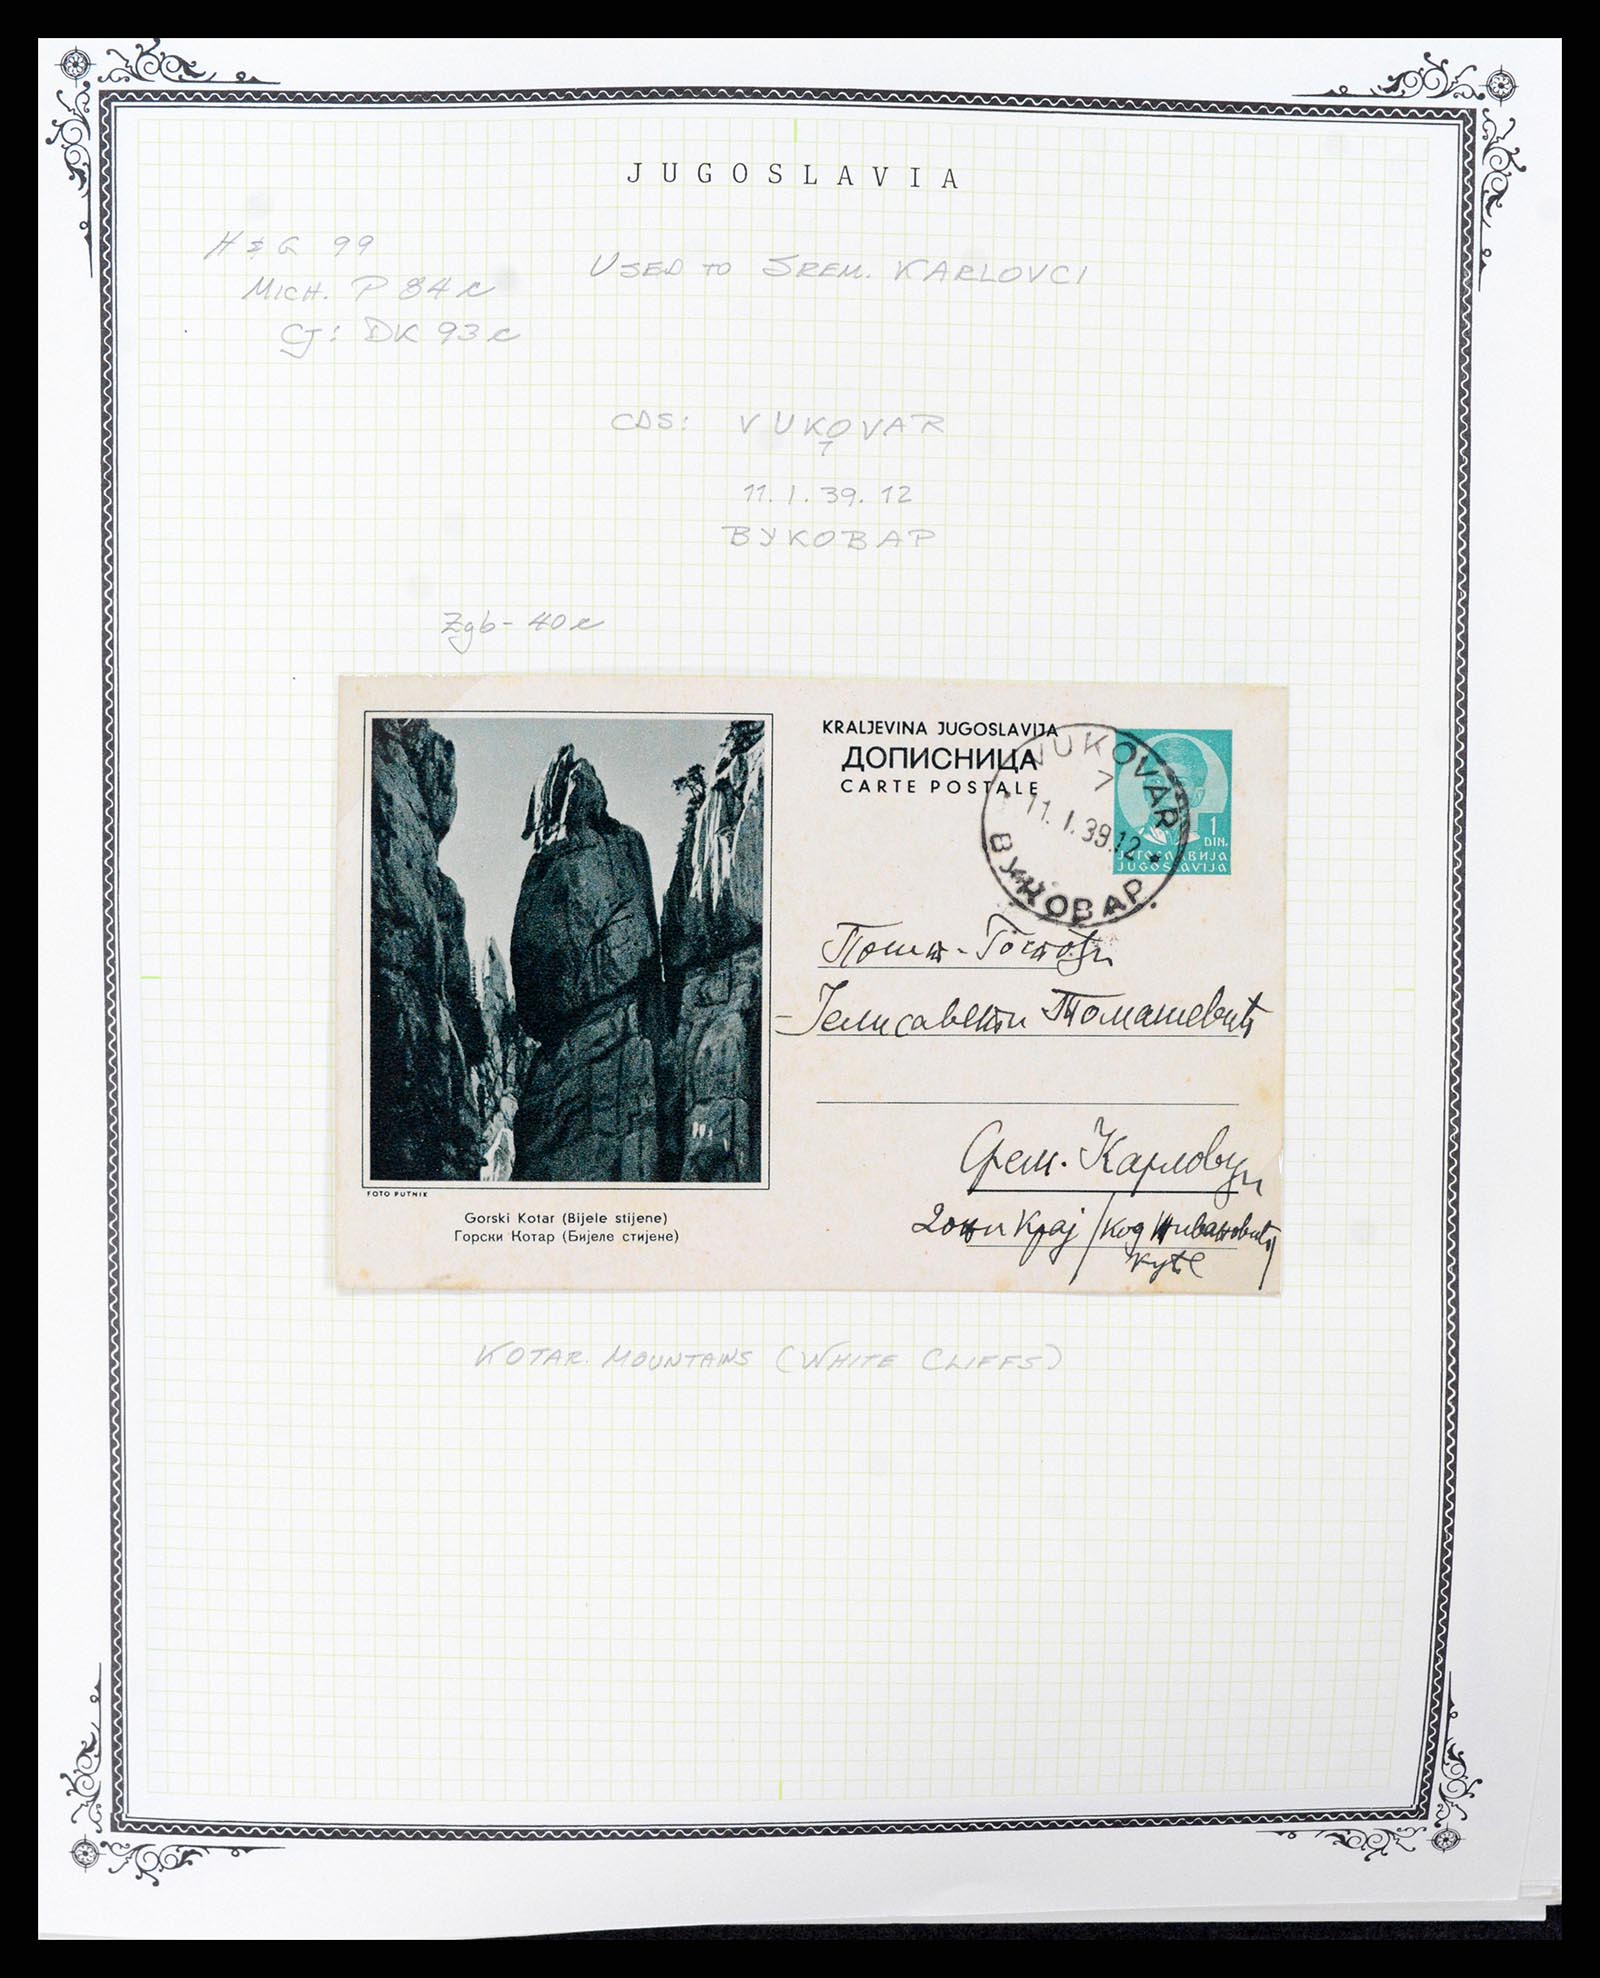 JUGOSLAVIA
H & G 99
MICH. P 84c
CJ: DK 93c
USED TO SREM. KARLOVCI
CDS: VUKOVAR
7
11. I. 39. 12
ВУКОВАР
Zgb-40c
KRALJEVINA JUGOSLAVIJA
ДОПИСНИЦА
CARTE POSTALE
VUKOVAR
7
11. I. 39.12
ВУКОВАР
1
DIN.
ЈУГОСЛАВИЈА
JUGOSLAVIJA
Госпођи
Јелисавети Томашевић
Срем. Карловци
Доњи Крај / код Живановић
куће /
FOTO PUTNIK
Gorski Kotar (Bijele stijene)
Горски Котар (Бијеле стијене)
KOTAR MOUNTAINS (WHITE CLIFFS)